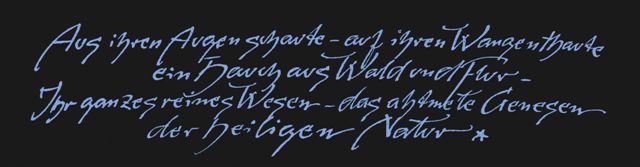 Aus ihren Augen schaute – auf ihren Wangen thaute
ein Hauch aus Wald und Flur –
Ihr ganzes reines Wesen – das athmete Genesen
der heiligen Natur *